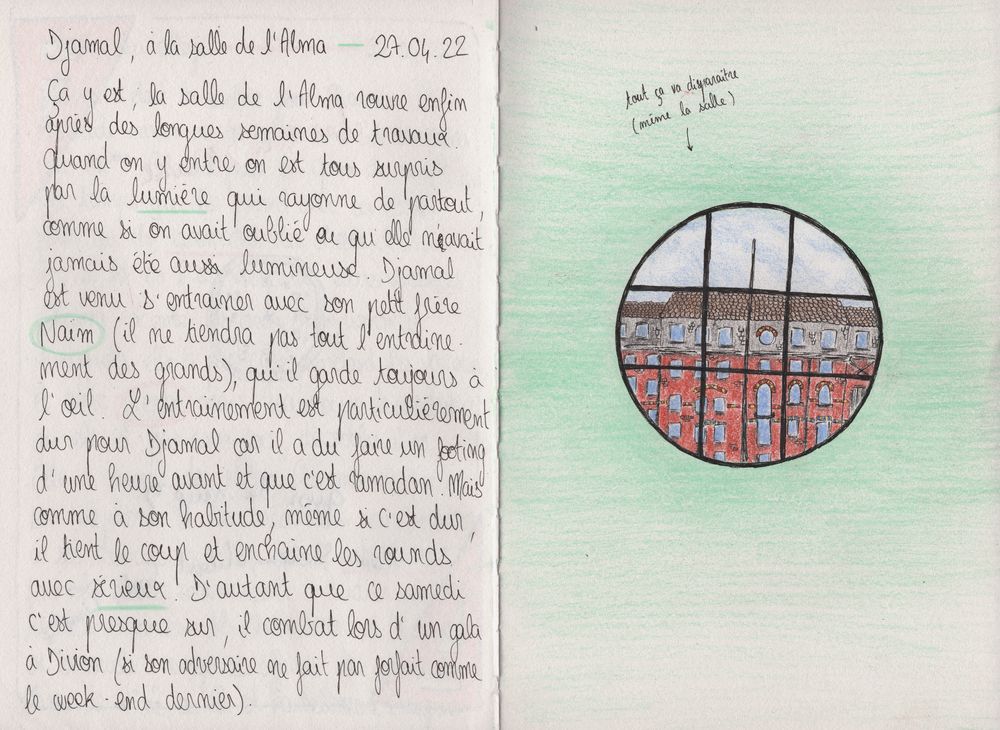 Djamal, à la salle de l'Alma — 27.04.22
Ça y est, la salle de l'Alma rouvre enfin
après des longues semaines de travaux.
Quand on y entre on est tous surpris
par la lumière qui rayonne de partout,
comme si on avait oublié ou qu'elle n'avait
jamais été aussi lumineuse. Djamal
est venu s'entrainer avec son petit frère
Naïm (il ne tiendra pas tout l'entraine-
ment des grands), qu'il garde toujours à
l'œil. L'entrainement est particulièrement
dur pour Djamal car il a du faire un footing
d'une heure avant et que c'est ramadan. Mais
comme à son habitude, même si c'est dur,
il tient le coup et enchaine les rounds
avec sérieux. D'autant que ce samedi
c'est presque sur, il combat lors d'un gala
à Divion (si son adversaire ne fait par forfait comme
le week-end dernier).
tout ça va disparaître
(même la salle)